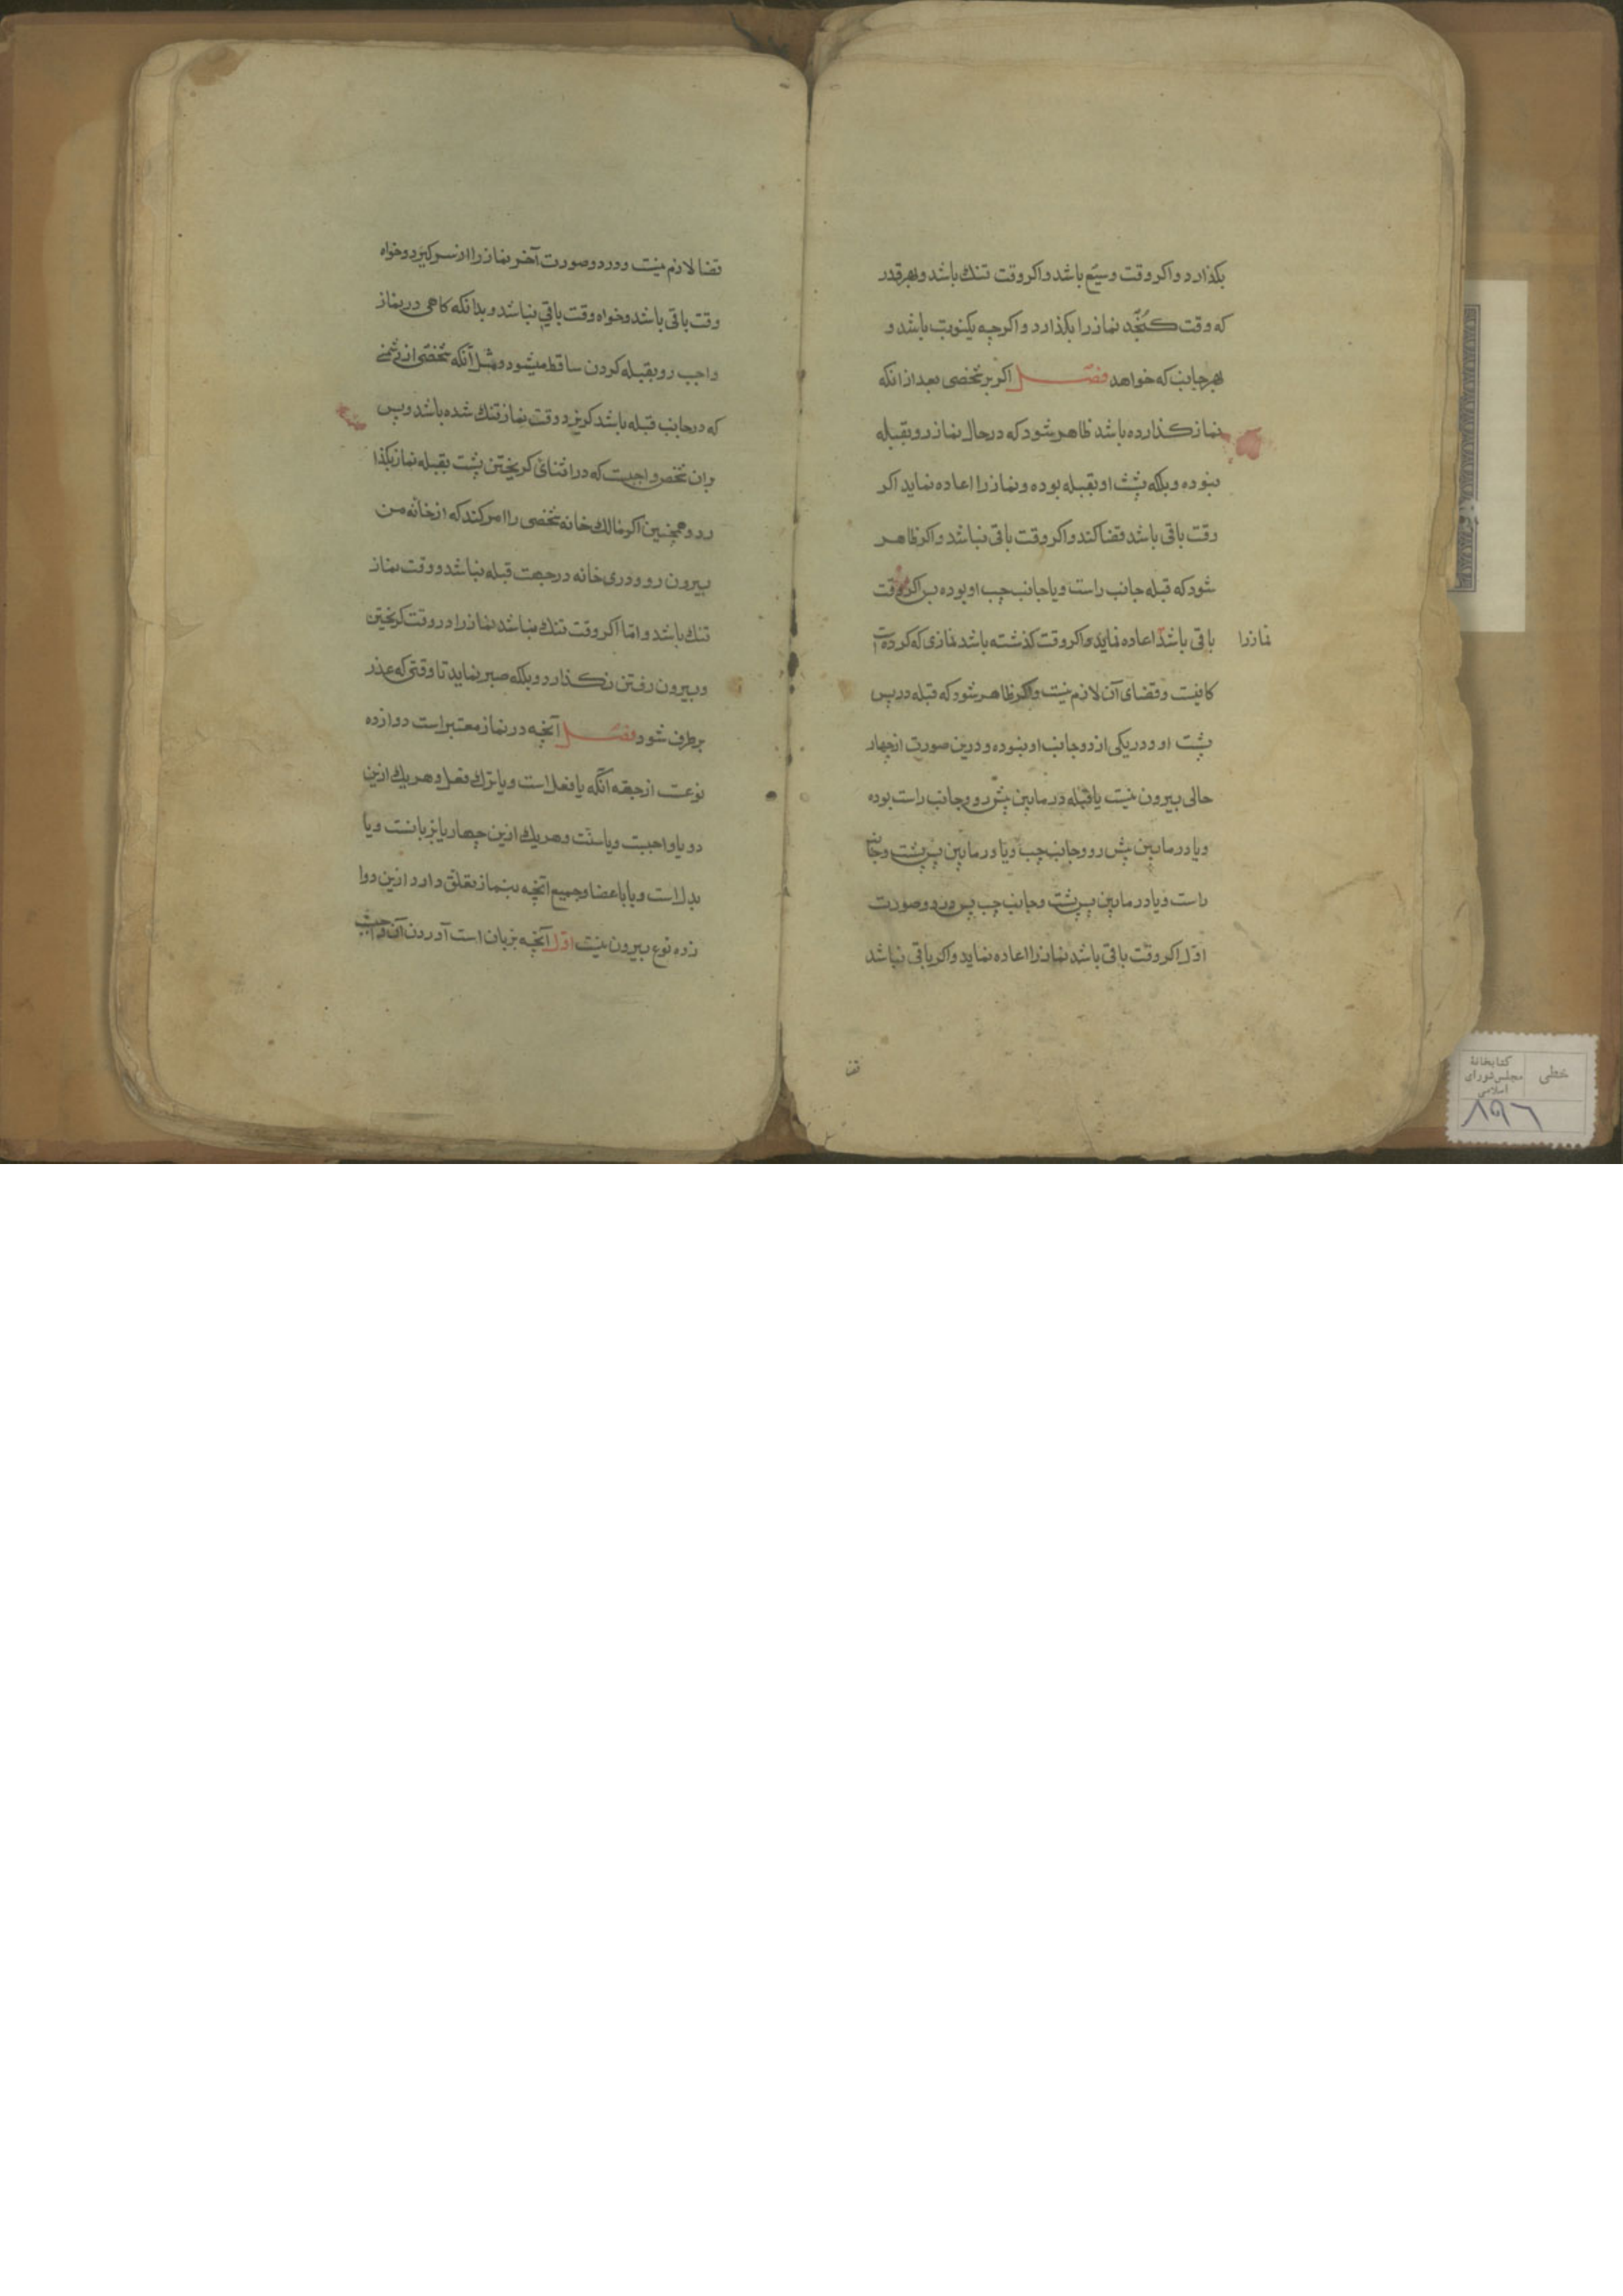 بکذارد واکر وقت وسیّع باشد واکر وقت تنك باشد وبهر قدر
که وقت کُنجَد نماز را بکذارد واکرچه یکنوبت باشد و
بهر جانب که خواهد فصــل اکر بر شخصی بعد از انکه
نماز کذارده باشد ظاهر شود که در حال نماز رو بقبله
نبوده وبلکه پشت او بقبله بوده ونماز را اعاده نماید اکر
وقت باقی باشد وقضا کند واکر وقت باقی نباشد واکر ظاهر
شود که قبله جانب راست ویا جانب چب او بوده بس اکر وقت
باقی باشد اعاده نماید واکر وقت کذشته باشد نمازی که کرده است
نماز را
کافیست وقضای آن لازم نیست واکر ظاهر شود که قبله در پس
پشت او ودر یکی از دو جانب او نبوده ودرین صورت از چهار
حالی بیرون نیست یا قبله در مابین پیش رو وجانب راست بوده
ویا در مابین پیش رو وجانب چب ویا در مابین پس پشت وجانب
راست ویا در مابین پس پشت وجانب چب پس در دو صورت
اوّل اکر وقت باقی باشد نماز را اعاده نماید واکر باقی نباشد
قضا
قضا لازم نیست ودر دو صورت آخر نماز را از سر کیرد وخواه
وقت باقی باشد وخواه وقت باقی نباشد وبدانکه کاهی در نماز
واجب رو بقبله کردن ساقط میشود ومثل آنکه شخصی از دشمنی
که در جانب قبله باشد کریزد ووقت نماز تنك شده باشد وپس
بران شخص واجبست که در اثنای کریختن پشت بقبله نماز بکذا
رد وهمچنین اکر مالك خانه شخصی را امر کند که از خانه من
بیرون رو ودری خانه در جهت قبله نباشد ووقت نماز
تنك باشد وامّا اکر وقت تنك نباشد نماز را در وقت کریختن
وبیرون رفتن نکذارد وبلکه صبر نماید تا وقتی که عذر
برطرف شود فصــل آنچه در نماز معتبر است دوازده
نوعست از جهة آنکه یا فعل است ویا ترك فعل وهر یك ازین
دو یا واجبست ویا سنّت وهر یك ازین چهار یا بزبانست ویا
بدل است ویا باعضا وجمیع آنچه بنماز تعلّق دارد ازین دوا
زده نوع بیرون نیست اوّل آنچه بزبان است آوردن آن واجبست
کتابخانهٔ
مجلس شورای
اسلامی
خطی
۸۹۶